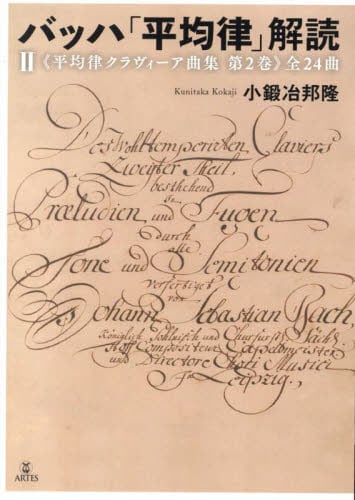 バッハ「平均律」解読
II《平均律クラヴィーア曲集 第2巻》全24曲
Kunitaka Kokaji 小鍛冶邦隆
Des Wohltemperirten Claviers
Zweiter Theil,
bestehend
in
Præludien und Fugen
durch
alle
Tone und Semitonien
verfertiget
von
Johann Sebastian Bach,
Königlich Pohlnisch und Churfürstl. Sächs.
Hoff Compositeur Capellmeister
und Directore Chori Musici
Leipzig.
ARTES